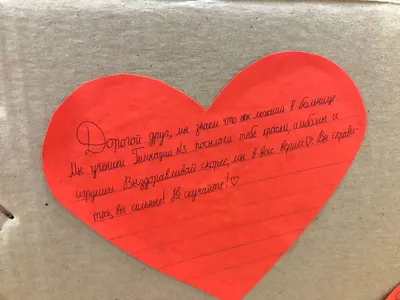 Дорогой друг, мы знаем что вы лежиш в больнице.
Мы ученики Гимназии №3 посылаем тебе краски, альбомы и
игрушки. Выздоравливай скорее, мы в вас верим♡. Вы справи-
тесь, вы сильные! Не скучайте!♡